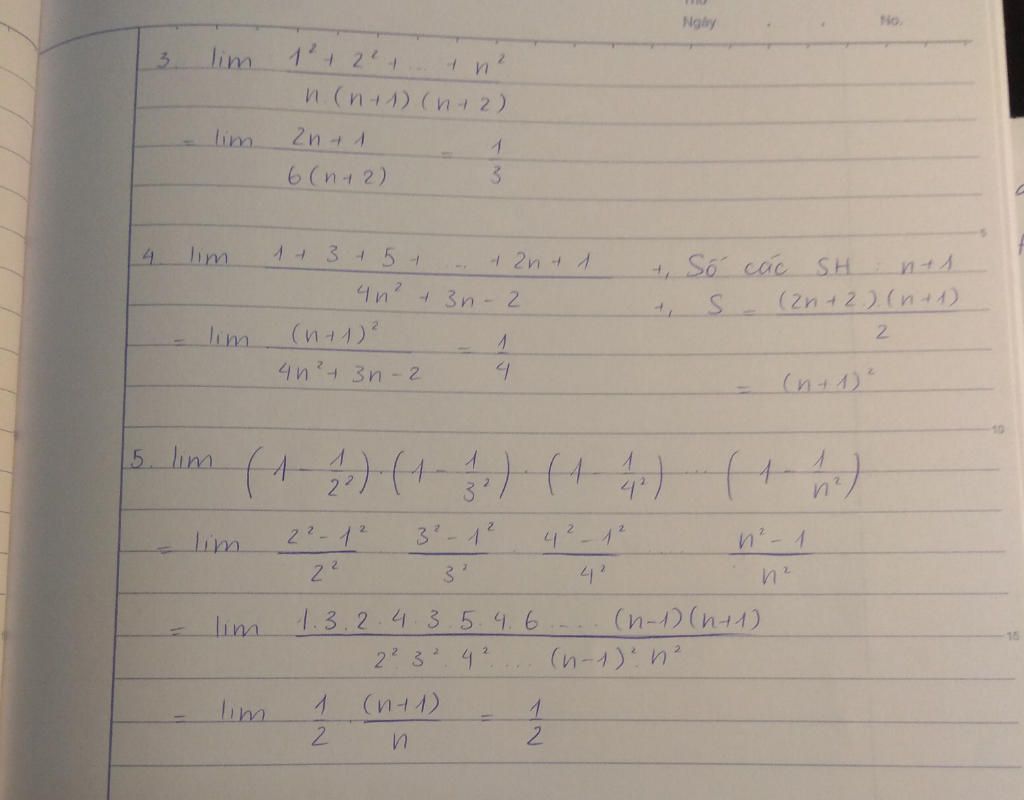 Thứ
Ngày . . No.
3. lim (1² + 2² + ... + n²) / (n.(n+1)(n+2))
= lim (2n + 1) / (6(n+2)) = 1/3
5
4. lim (1 + 3 + 5 + ... + 2n + 1) / (4n² + 3n - 2) +, Số các SH : n+1
+, S = ((2n+2).(n+1)) / 2
= lim (n+1)² / (4n² + 3n - 2) = 1/4
= (n+1)²
10
5. lim (1 - 1/2²).(1 - 1/3²).(1 - 1/4²) ... (1 - 1/n²)
= lim (2² - 1²)/2² . (3² - 1²)/3² . (4² - 1²)/4² ... (n² - 1)/n²
= lim (1.3.2.4.3.5.4.6 .... (n-1)(n+1)) / (2².3².4² .... (n-1)².n²)
15
= lim 1/2 . (n+1)/n = 1/2